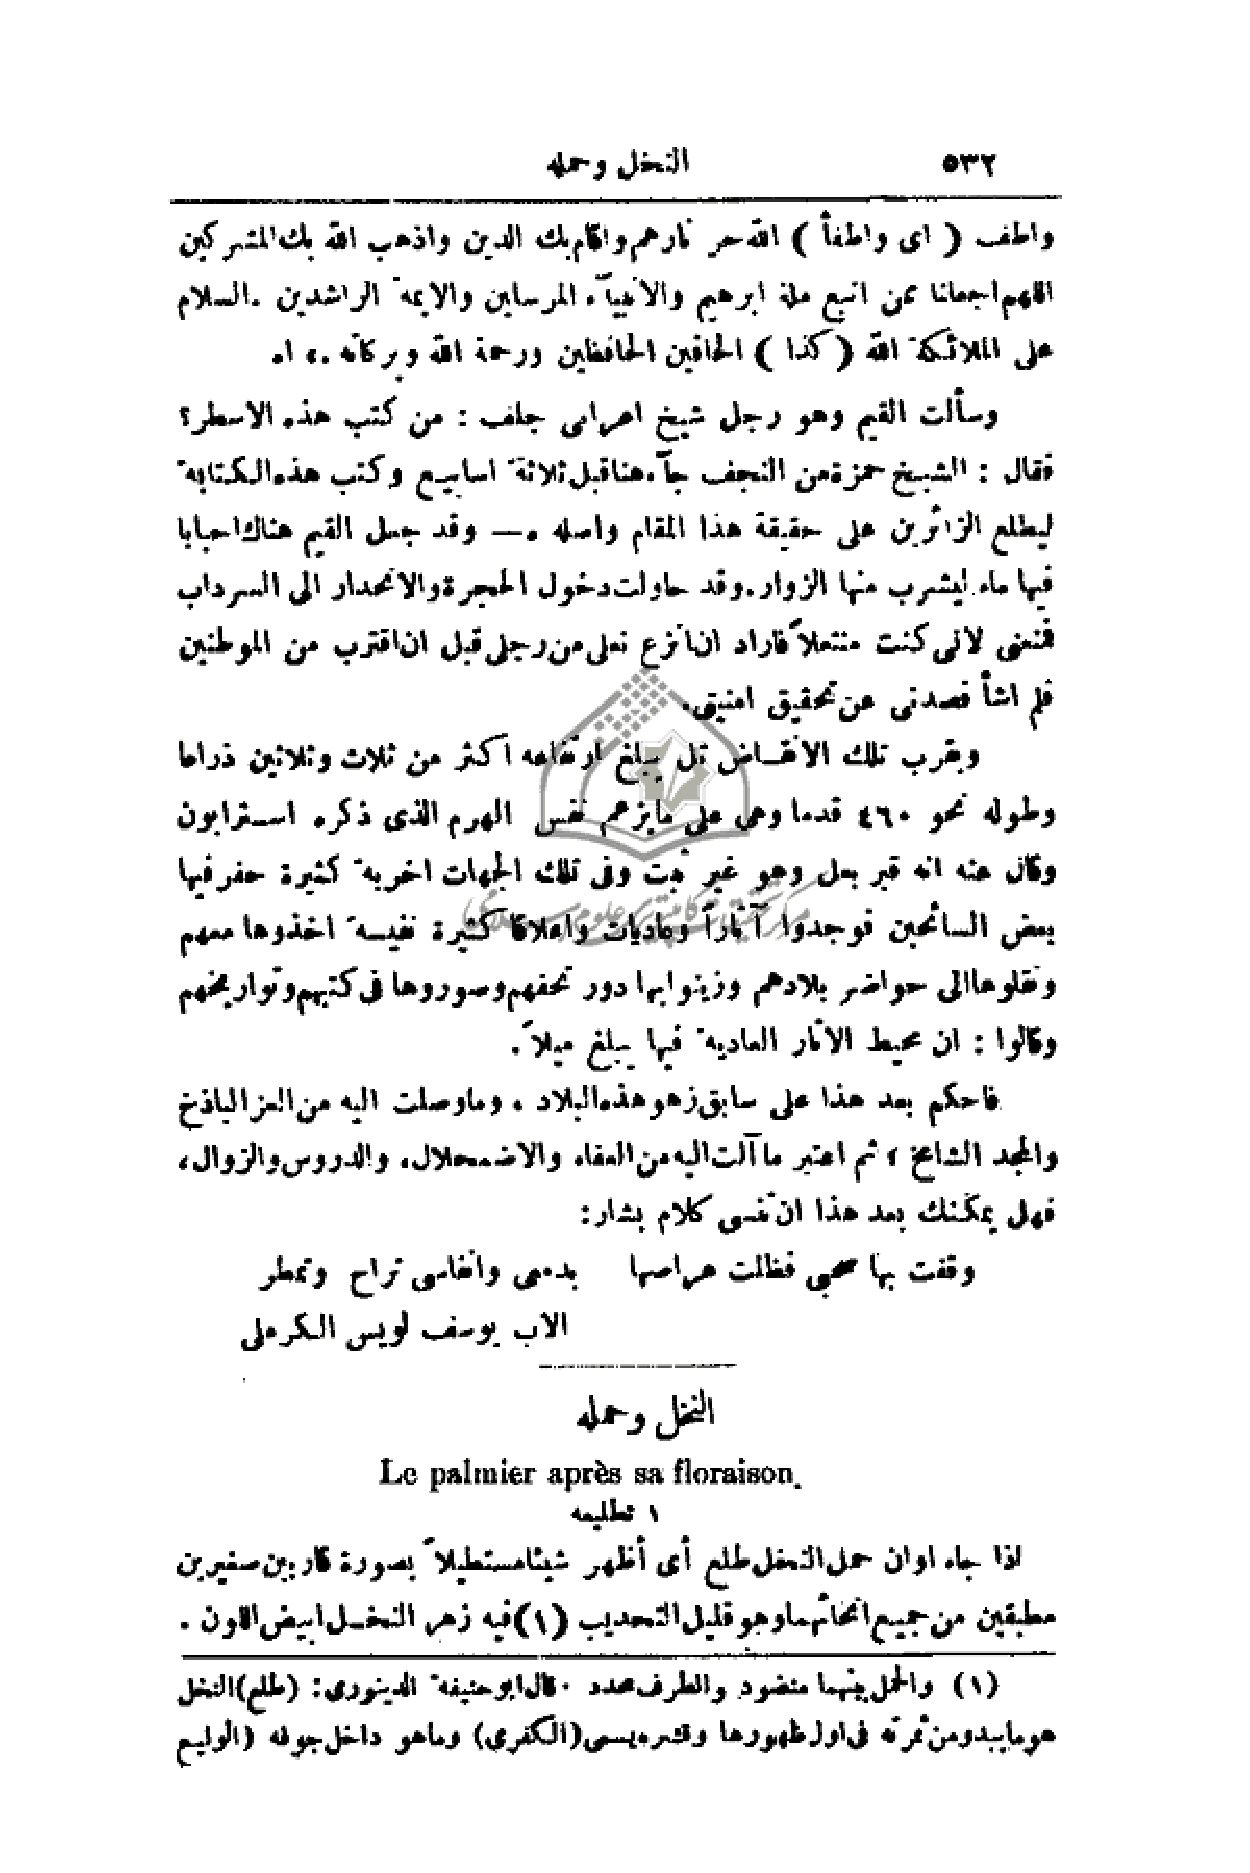 ٥٣٢ النخل وحمله
واطف ( اى واطفأ ) الله حر نارهم واقام بك الدين واذهب الله بك المشركين
اللهم اجعلنا ممن اتبع ملة ابرهيم والانبيآء المرسلين والايمة الراشدين . السلام
على الملائكة الله ( كذا ) الحافين الحافظين ورحمة الله وبركاته .، ا.
وسألت القيم وهو رجل شيخ اعرابى جلف : من كتب هذه الاسطر؟
فقال : الشيخ حمزة من النجف جآء هنا قبل ثلاثة اسابيع وكتب هذه الكتابة
ليطلع الزائرين على حقيقة هذا المقام واصله . — وقد جعل القيم هناك احبابا
فيها ماء ليشرب منها الزوار . وقد حاولت دخول الحجرة والانحدار الى السرداب
فمنعنى لانى كنت منتعلاً فاراد ان انزع نعلى من رجلى قبل ان اقترب من الموطنين
فلم اشأ فصدنى عن تحقيق امنيتى .
وبقرب تلك الانقـاض تل يبلغ ارتفاعه اكثر من ثلاث وثلاثين ذراعا
وطوله نحو ٤٦٠ قدما وهى على مايزعم نفس الهرم الذى ذكره استرابون
وقال عنه انه قبر بعل وهو غير ثبت وفى تلك الجهات اخربة كثيرة حفر فيها
بعض السائحين فوجدوا آثاراً وعاديات واعلاقا كثيرة نفيسـة اخذوها معهم
ونقلوها الى حواضر بلادهم وزينوا بها دور تحفهم وصوروها فى كتبهم وتواريخهم
وقالوا : ان محيط الآثار العادية فيها يبلغ ميلاً .
فاحكم بعد هذا على سابق زهو هذه البلاد ، وما وصلت اليه من العز الباذخ
والمجد الشامخ ، ثم اعتبر ما آلت اليه من العفاء والاضمحلال، والدروس والزوال،
فهل يمكنك بعد هذا ان تنسى كلام بشار:
وقفت بها صحبى فظلت عراصها بدمعى وانفاسى تراح وتمطر
الاب يوسف لويس الكرملى
النخل وحمله
Le palmier après sa floraison.
١ تطليعه
اذا جاء اوان حمل النخل طلع أى أظهر شيئا مستطيلاً بصورة قاربين صغيرين
مطبقين من جميع انحائهما وهو قليل التحديب (١) فيه زهر النخـل ابيض اللون .
(١) والحمل بينهما منضود والطرف محدد . قال ابو حنيفة الدينورى: (طلع) النخل
هو مايبدو من ثمرته فى اول ظهورها وقشره يسمى (الكفرى) وماهو داخل جوفه (الوليع